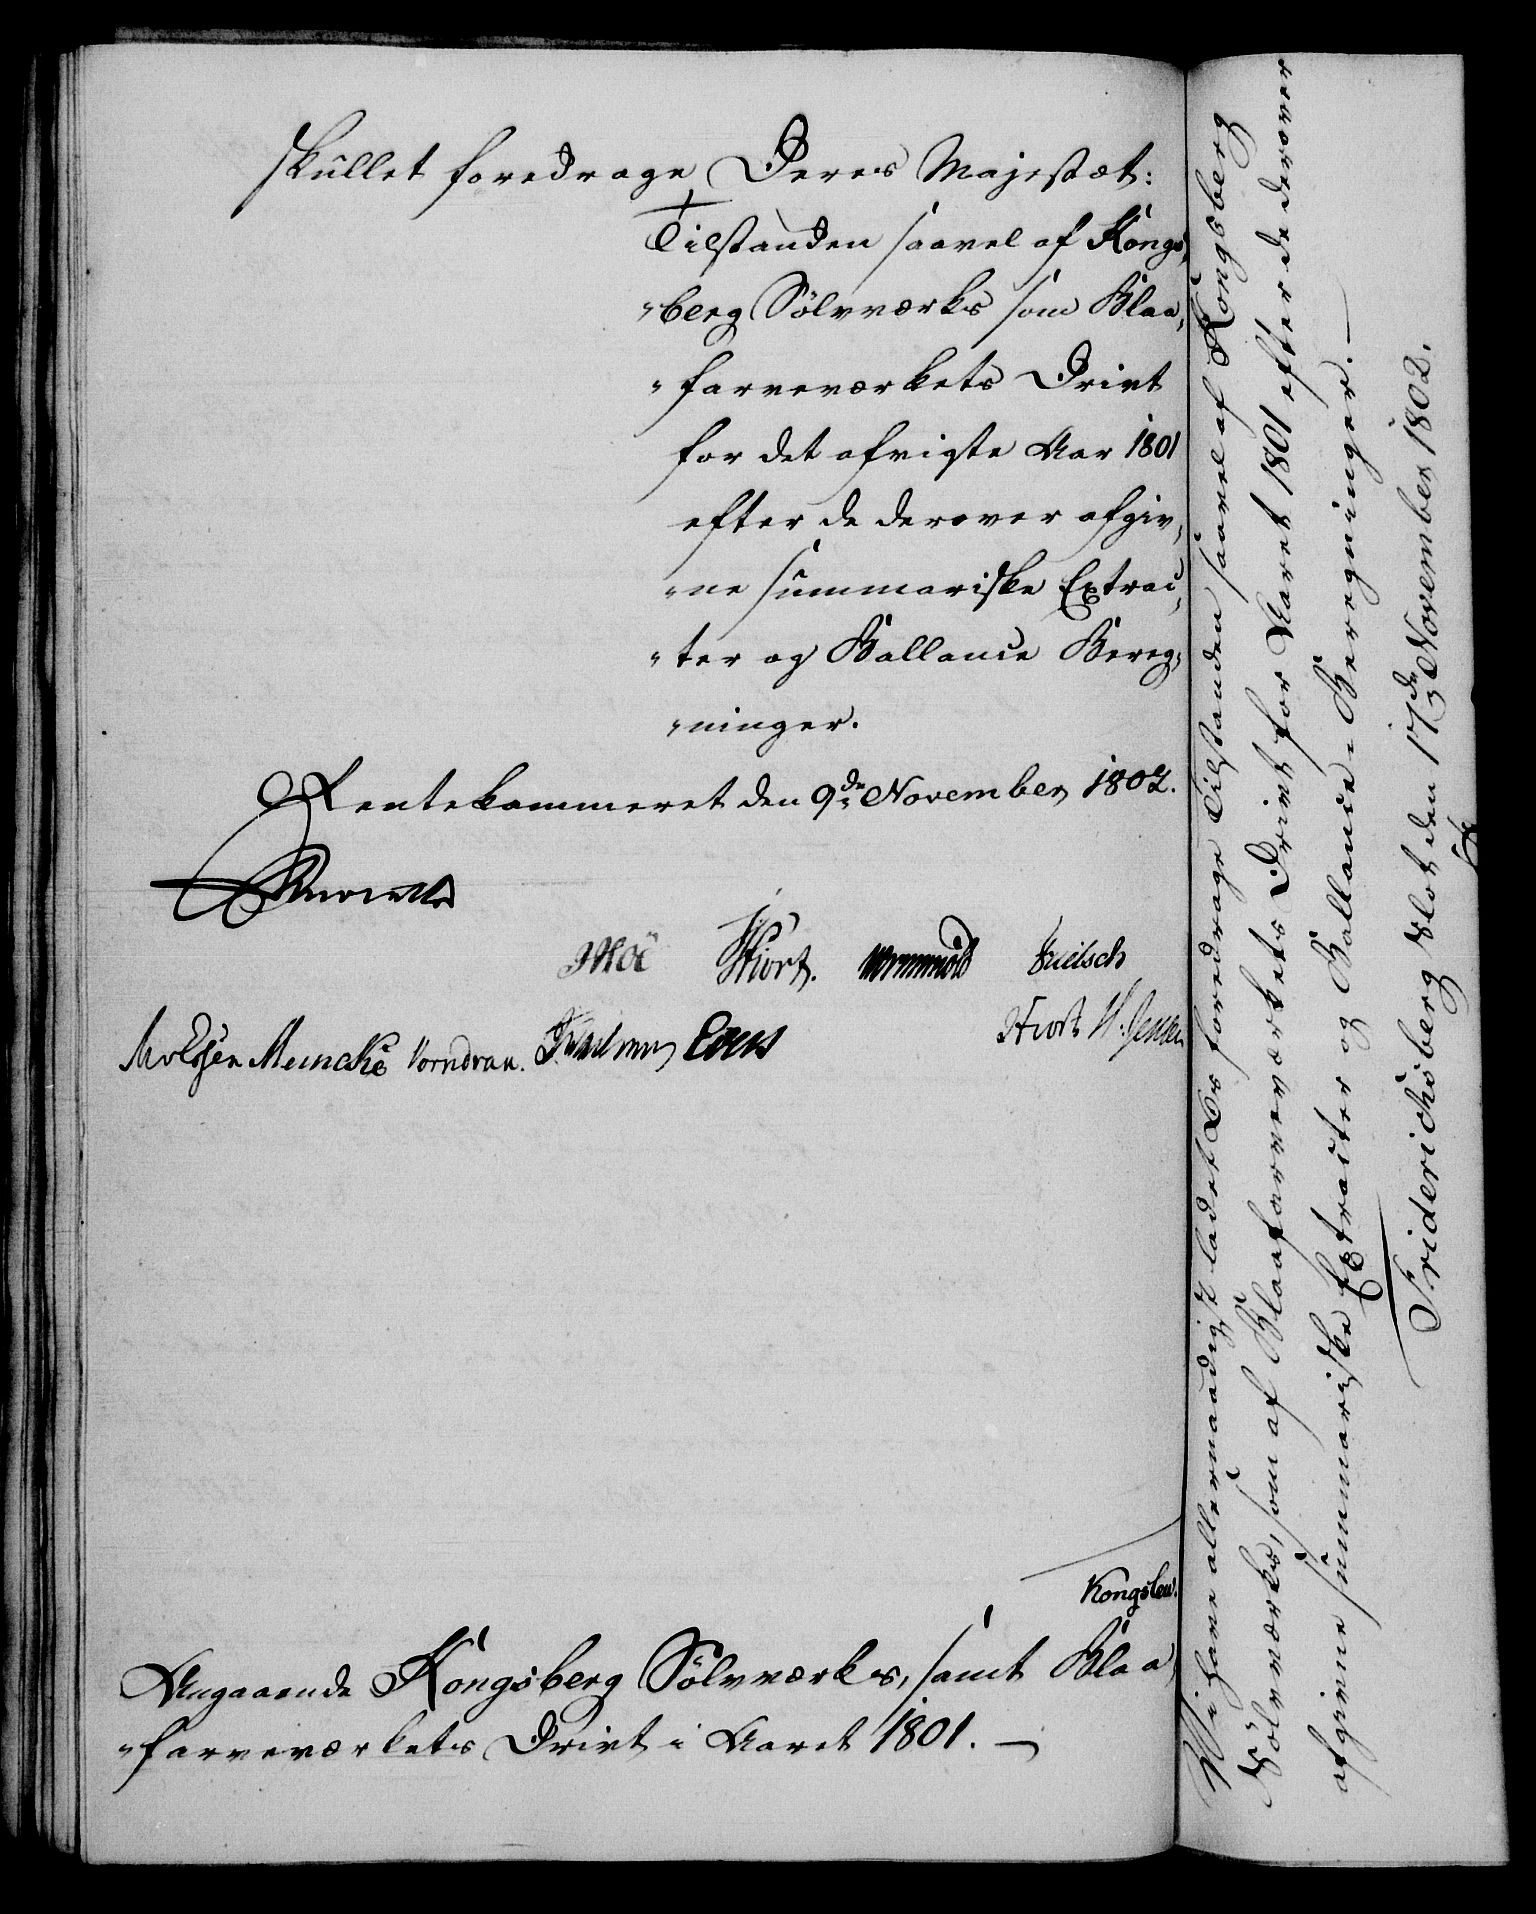 skullet foredrage Deres Majestæt:
Tilstanden saavel af Kongs„
„berg Sölvværks som Blaa„
„farveværkets Drivt
for det afvigte Aar 1801
efter de derover afgiv„
„ne summariske Extrac„
„ter og Ballance Bereg„
„ninger.
Rentekammeret den 9de November 1802.
Moë Hiort. Wormskiold
Meincke Vorndran.
Hiort H. Jensen
Kongslew.
Angaaende Kongsberg Sölvværks, samt Blaa„
„farveværkets Drivt i Aaret 1801. —
Vi have allernaadigst ladet Os foredrage Tilstanden saavel af Kongsberg
Sölvværks, som af Blaafarveværkets Drivt for Aaret 1801 efter de derover
afgivne summariske Extracter og Ballance-Beregninger. —
Friderichsberg Slot den 17de November 1802.